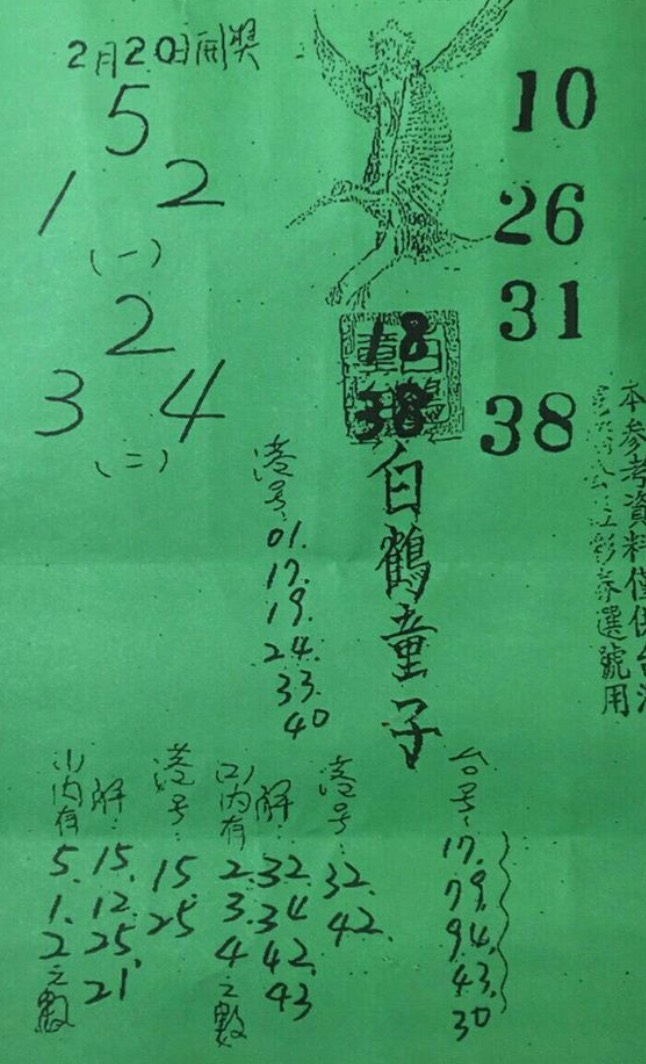 2月20日開獎
5
1 2
(一)
2
3 4
(二)
10
26
31
38
18
38
白鶴童子
本參考資料僅供台
彩券選號用
港号:
01.
17.
19.
24.
33.
40
(1)內有
5.
1.
2
之數
解:
15.
12.
25.
21
港号:
15.
25
(2)內有
2.
3.
4
之數
解:
32.
34
42.
43
港号:
32.
42.
台号:
17.
79.
94.
43.
30